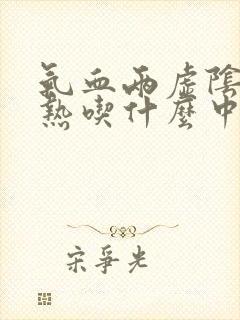 氣血兩虛陰
熱喫什麼中
宋爭光